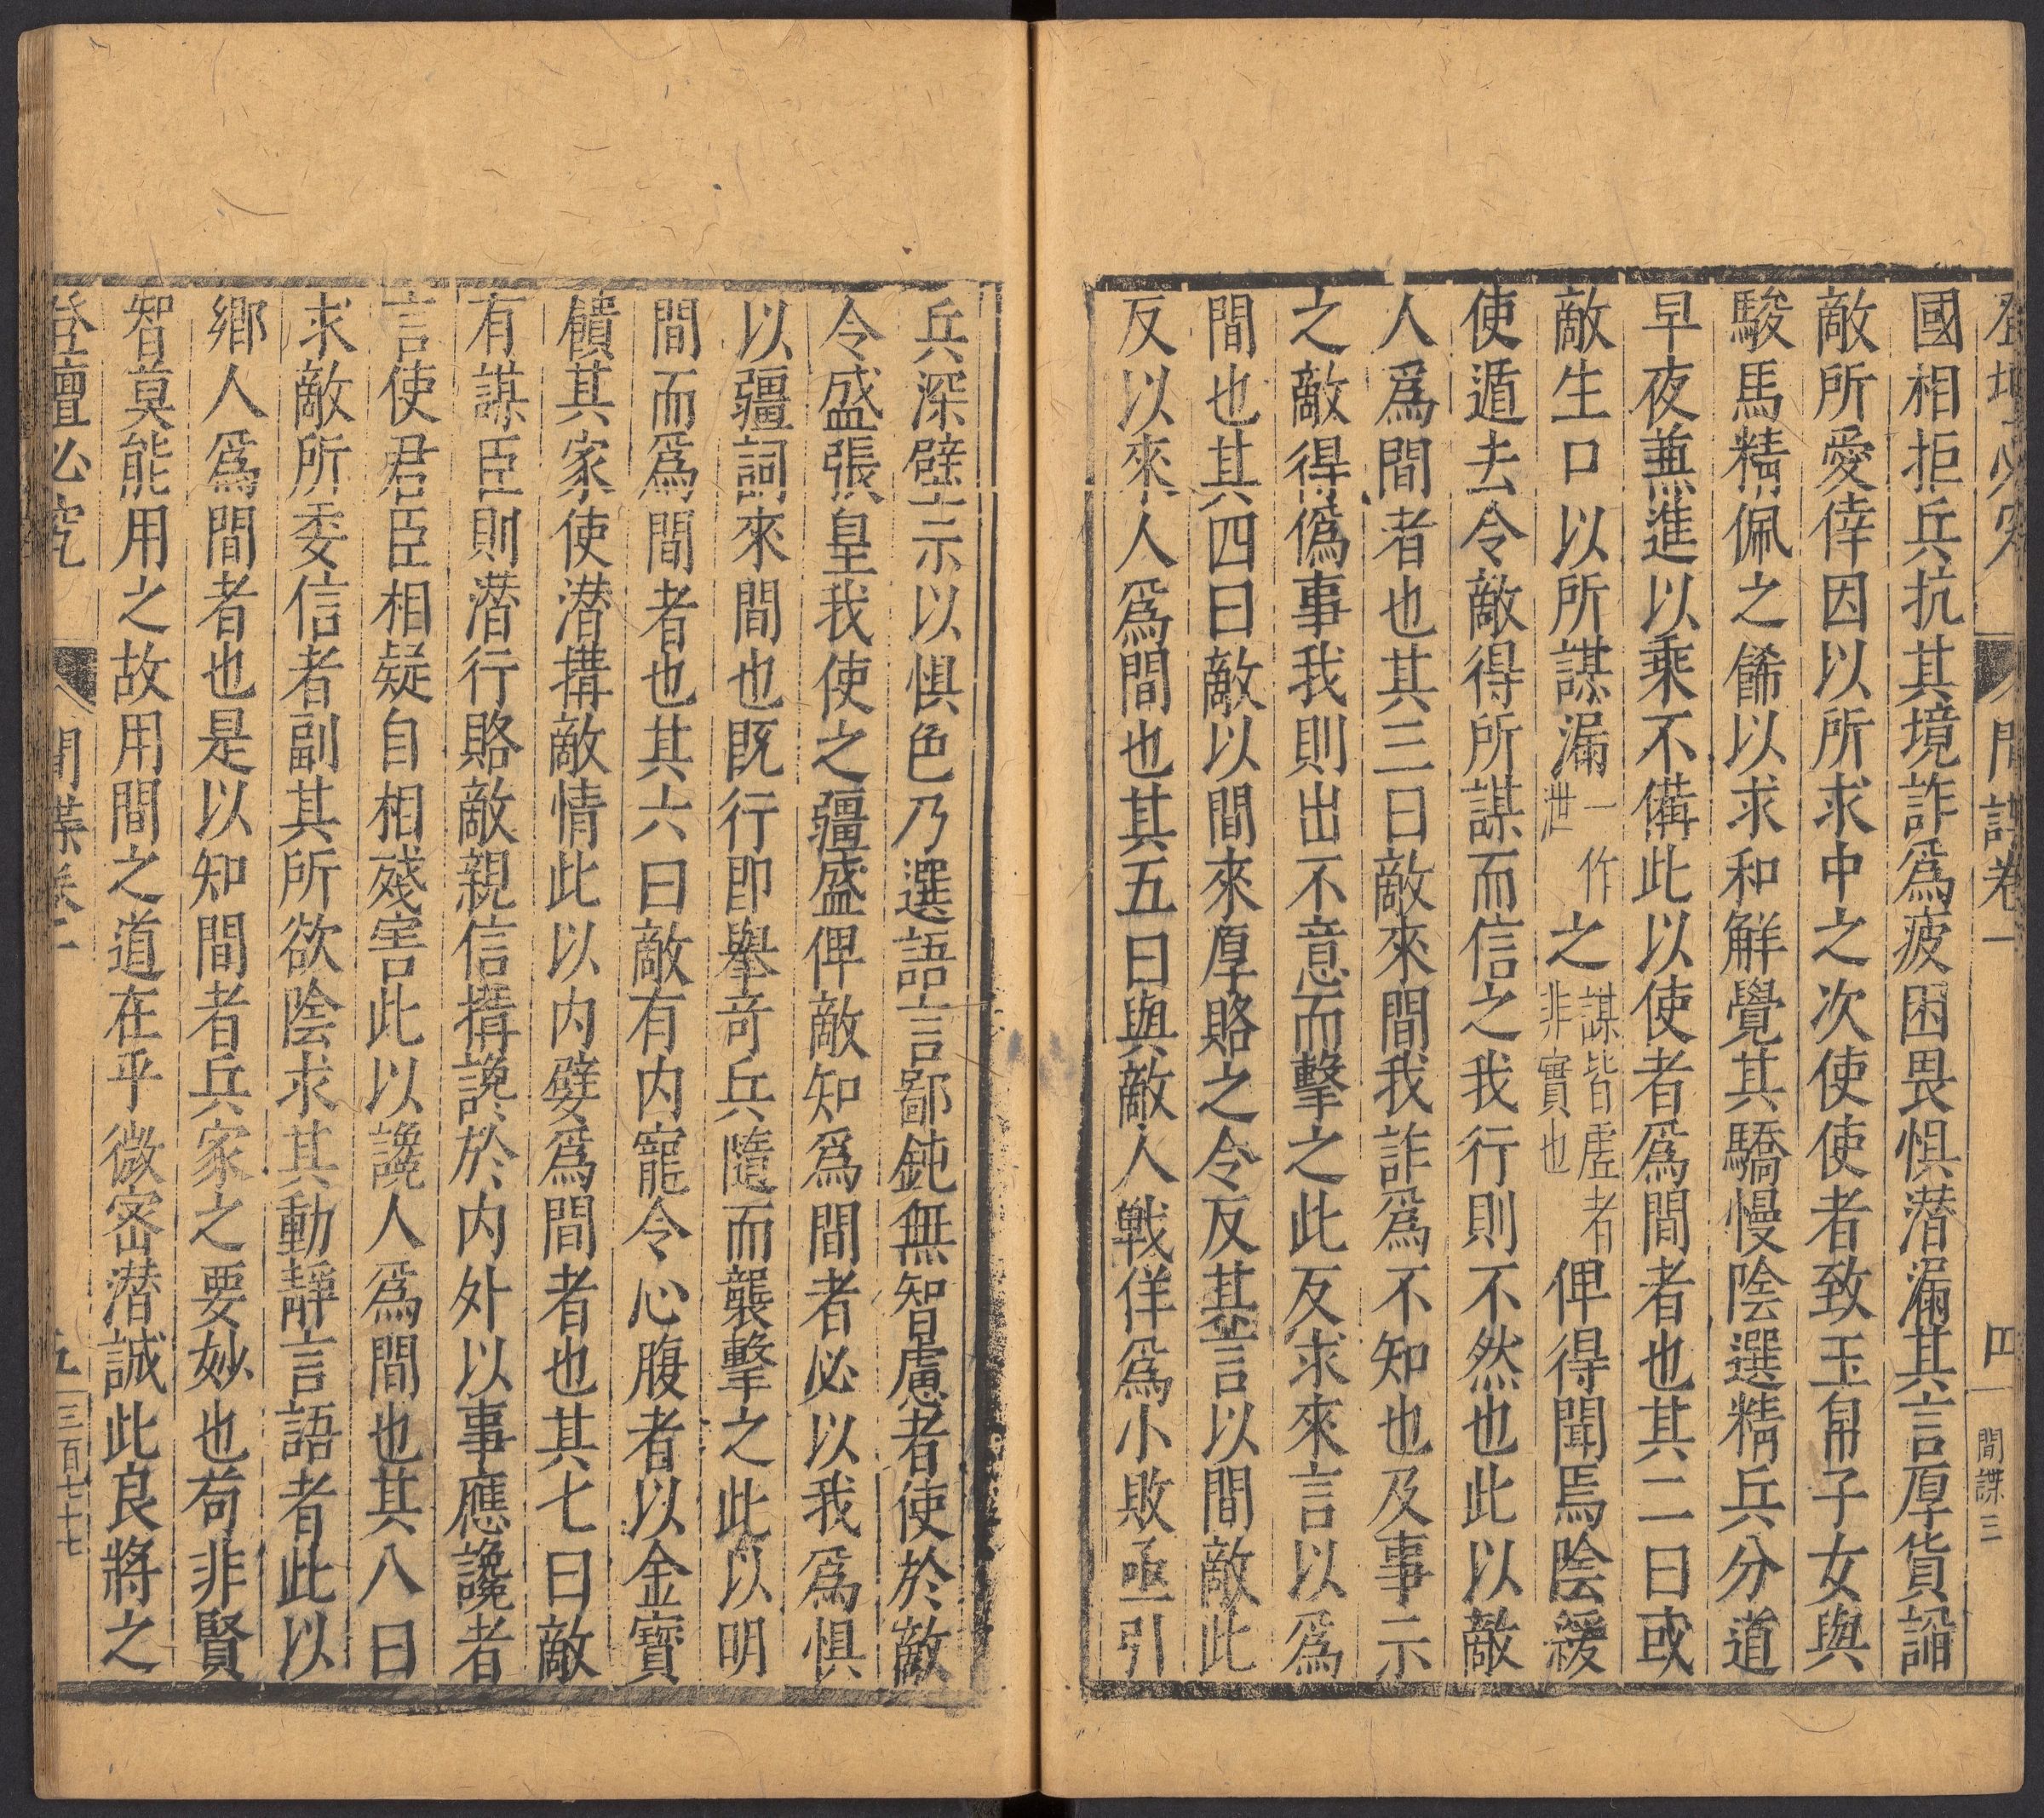 登壇必究 間諜卷一 四 間諜三
國相拒兵抗其境詐爲疲困畏惧潜漏其言厚貨謟
敵所愛倖因以所求中之次使使者致玉帛子女與
駿馬精佩之餙以求和解覺其驕慢陰選精兵分道
早夜兼進以乘不備此以使者爲間者也其二曰或
敵生口以所謀漏一作泄之謀皆虛者非實也俾得聞焉陰緩
使遁去令敵得所謀而信之我行則不然也此以敵
人爲間者也其三曰敵來間我詐爲不知也及事示
之敵得僞事我則出不意而擊之此反求來言以爲
間也其四曰敵以間來厚賂之令反其言以間敵此
反以來人爲間也其五曰與敵人戦佯爲小敗亟引
兵深壁示以惧色乃選語言鄙鈍無智慮者使於敵
令盛張皇我使之疆盛俾敵知爲間者必以我爲惧
以疆詞來間也既行即舉竒兵隨而襲擊之此以明
間而爲間者也其六曰敵有内寵令心腹者以金寳
饋其家使潜搆敵情此以内嬖爲間者也其七曰敵
有謀臣則潜行賂敵親信搆讒於内外以事應讒者
言使君臣相疑自相殘害此以讒人爲間也其八曰
求敵所委信者副其所欲陰求其動靜言語者此以
鄉人爲間者也是以知間者兵家之要妙也苟非賢
智莫能用之故用間之道在乎微密潜誠此良將之
登壇必究 間諜卷一 五 三百七十七